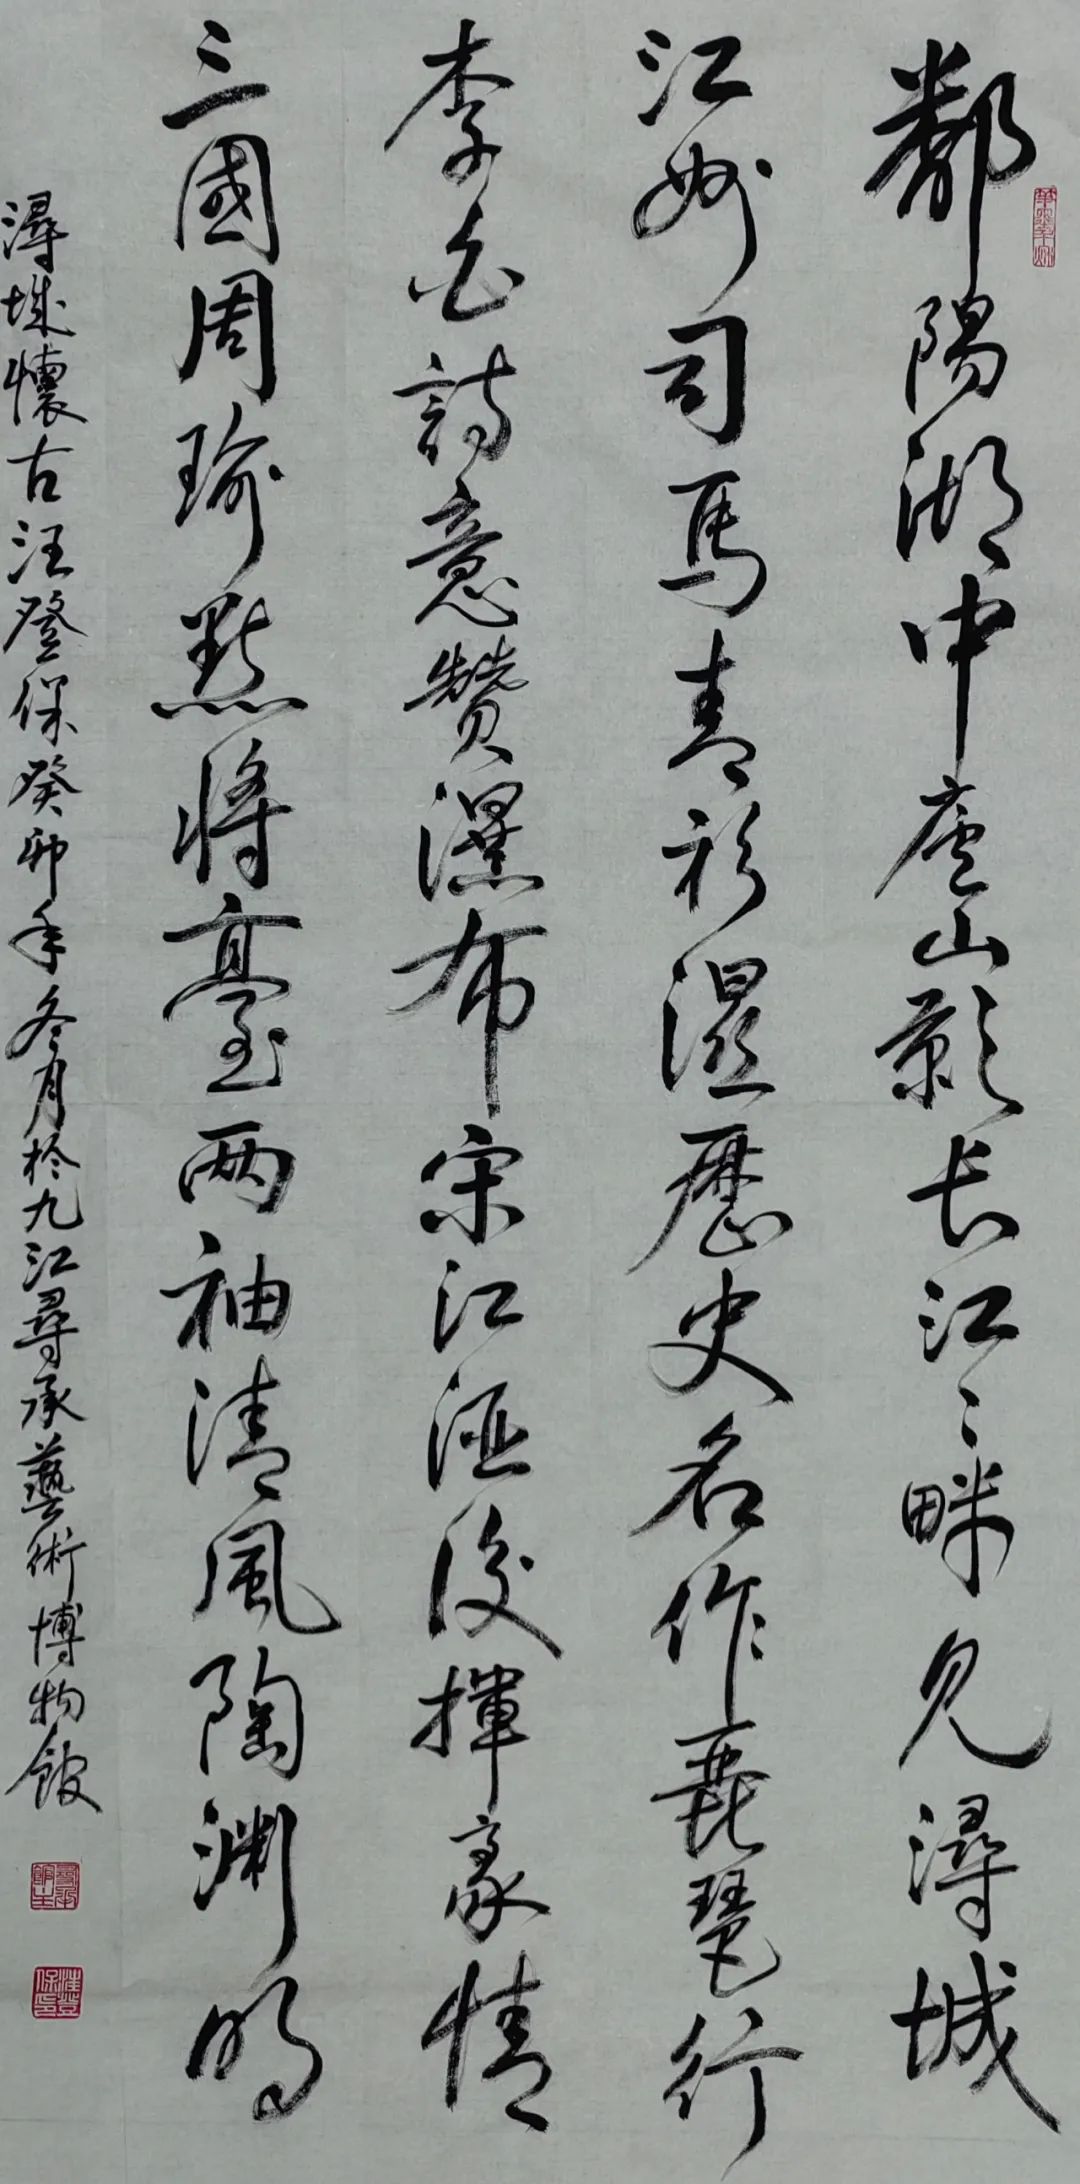 鄱陽湖中廬山影长江江畔見潯城
江州司馬青衫濕歷史名作琵琶行
李白詩意贊瀑布宋江酒後揮豪情
三國周瑜點將臺两袖清風陶渊明
潯城懷古汪登保癸卯年冬月於九江尋承藝術博物館